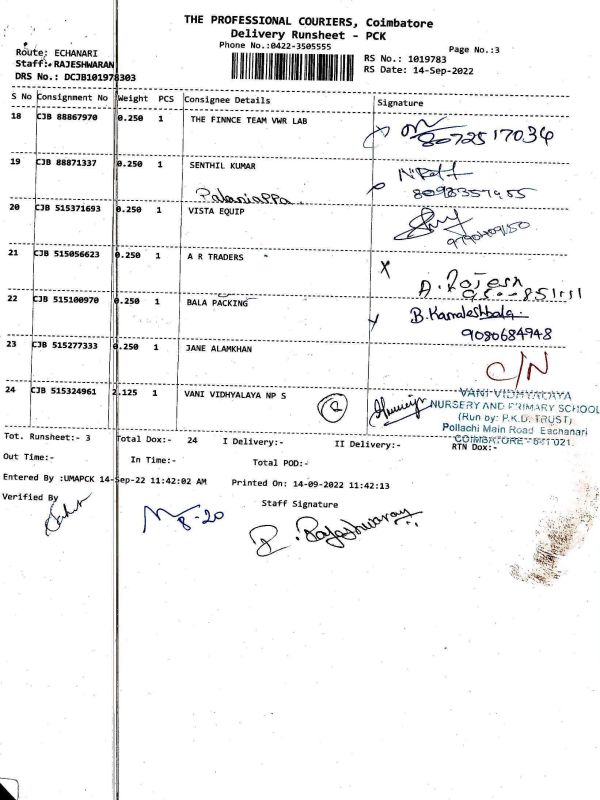 THE PROFESSIONAL COURIERS, Coimbatore
Delivery Runsheet - PCK
Phone No.:0422-3505555
Page No.:3
Route: ECHANARI
Staff: RAJESHWARAN
DRS No.: DCJB101978303
RS No.: 1019783
RS Date: 14-Sep-2022
S No Consignment No Weight PCS Consignee Details Signature
18 CJB 88867970 0.250 1 THE FINNCE TEAM VWR LAB
8072517034
19 CJB 88871337 0.250 1 SENTHIL KUMAR
Palaniappa
20 CJB 515371693 0.250 1 VISTA EQUIP
21 CJB 515056623 0.250 1 A R TRADERS
X A. Rojesh
22 CJB 515100970 0.250 1 BALA PACKING
B. Kamaleshbala
9080684948
23 CJB 515277333 0.250 1 JANE ALAMKHAN
C/N
24 CJB 515324961 2.125 1 VANI VIDHYALAYA NP S
VANI VIDHYALAYA
NURSERY AND PRIMARY SCHOOL
(Run by: P.K.D. TRUST)
Pollachi Main Road Eachanari
COIMBATORE - 641 021.
Tot. Runsheet:- 3 Total Dox:- 24 I Delivery:- II Delivery:- RTN Dox:-
Out Time:- In Time:- Total POD:-
Entered By :UMAPCK 14-Sep-22 11:42:02 AM Printed On: 14-09-2022 11:42:13
Verified By Staff Signature
8-20
R. Rajeshwaran